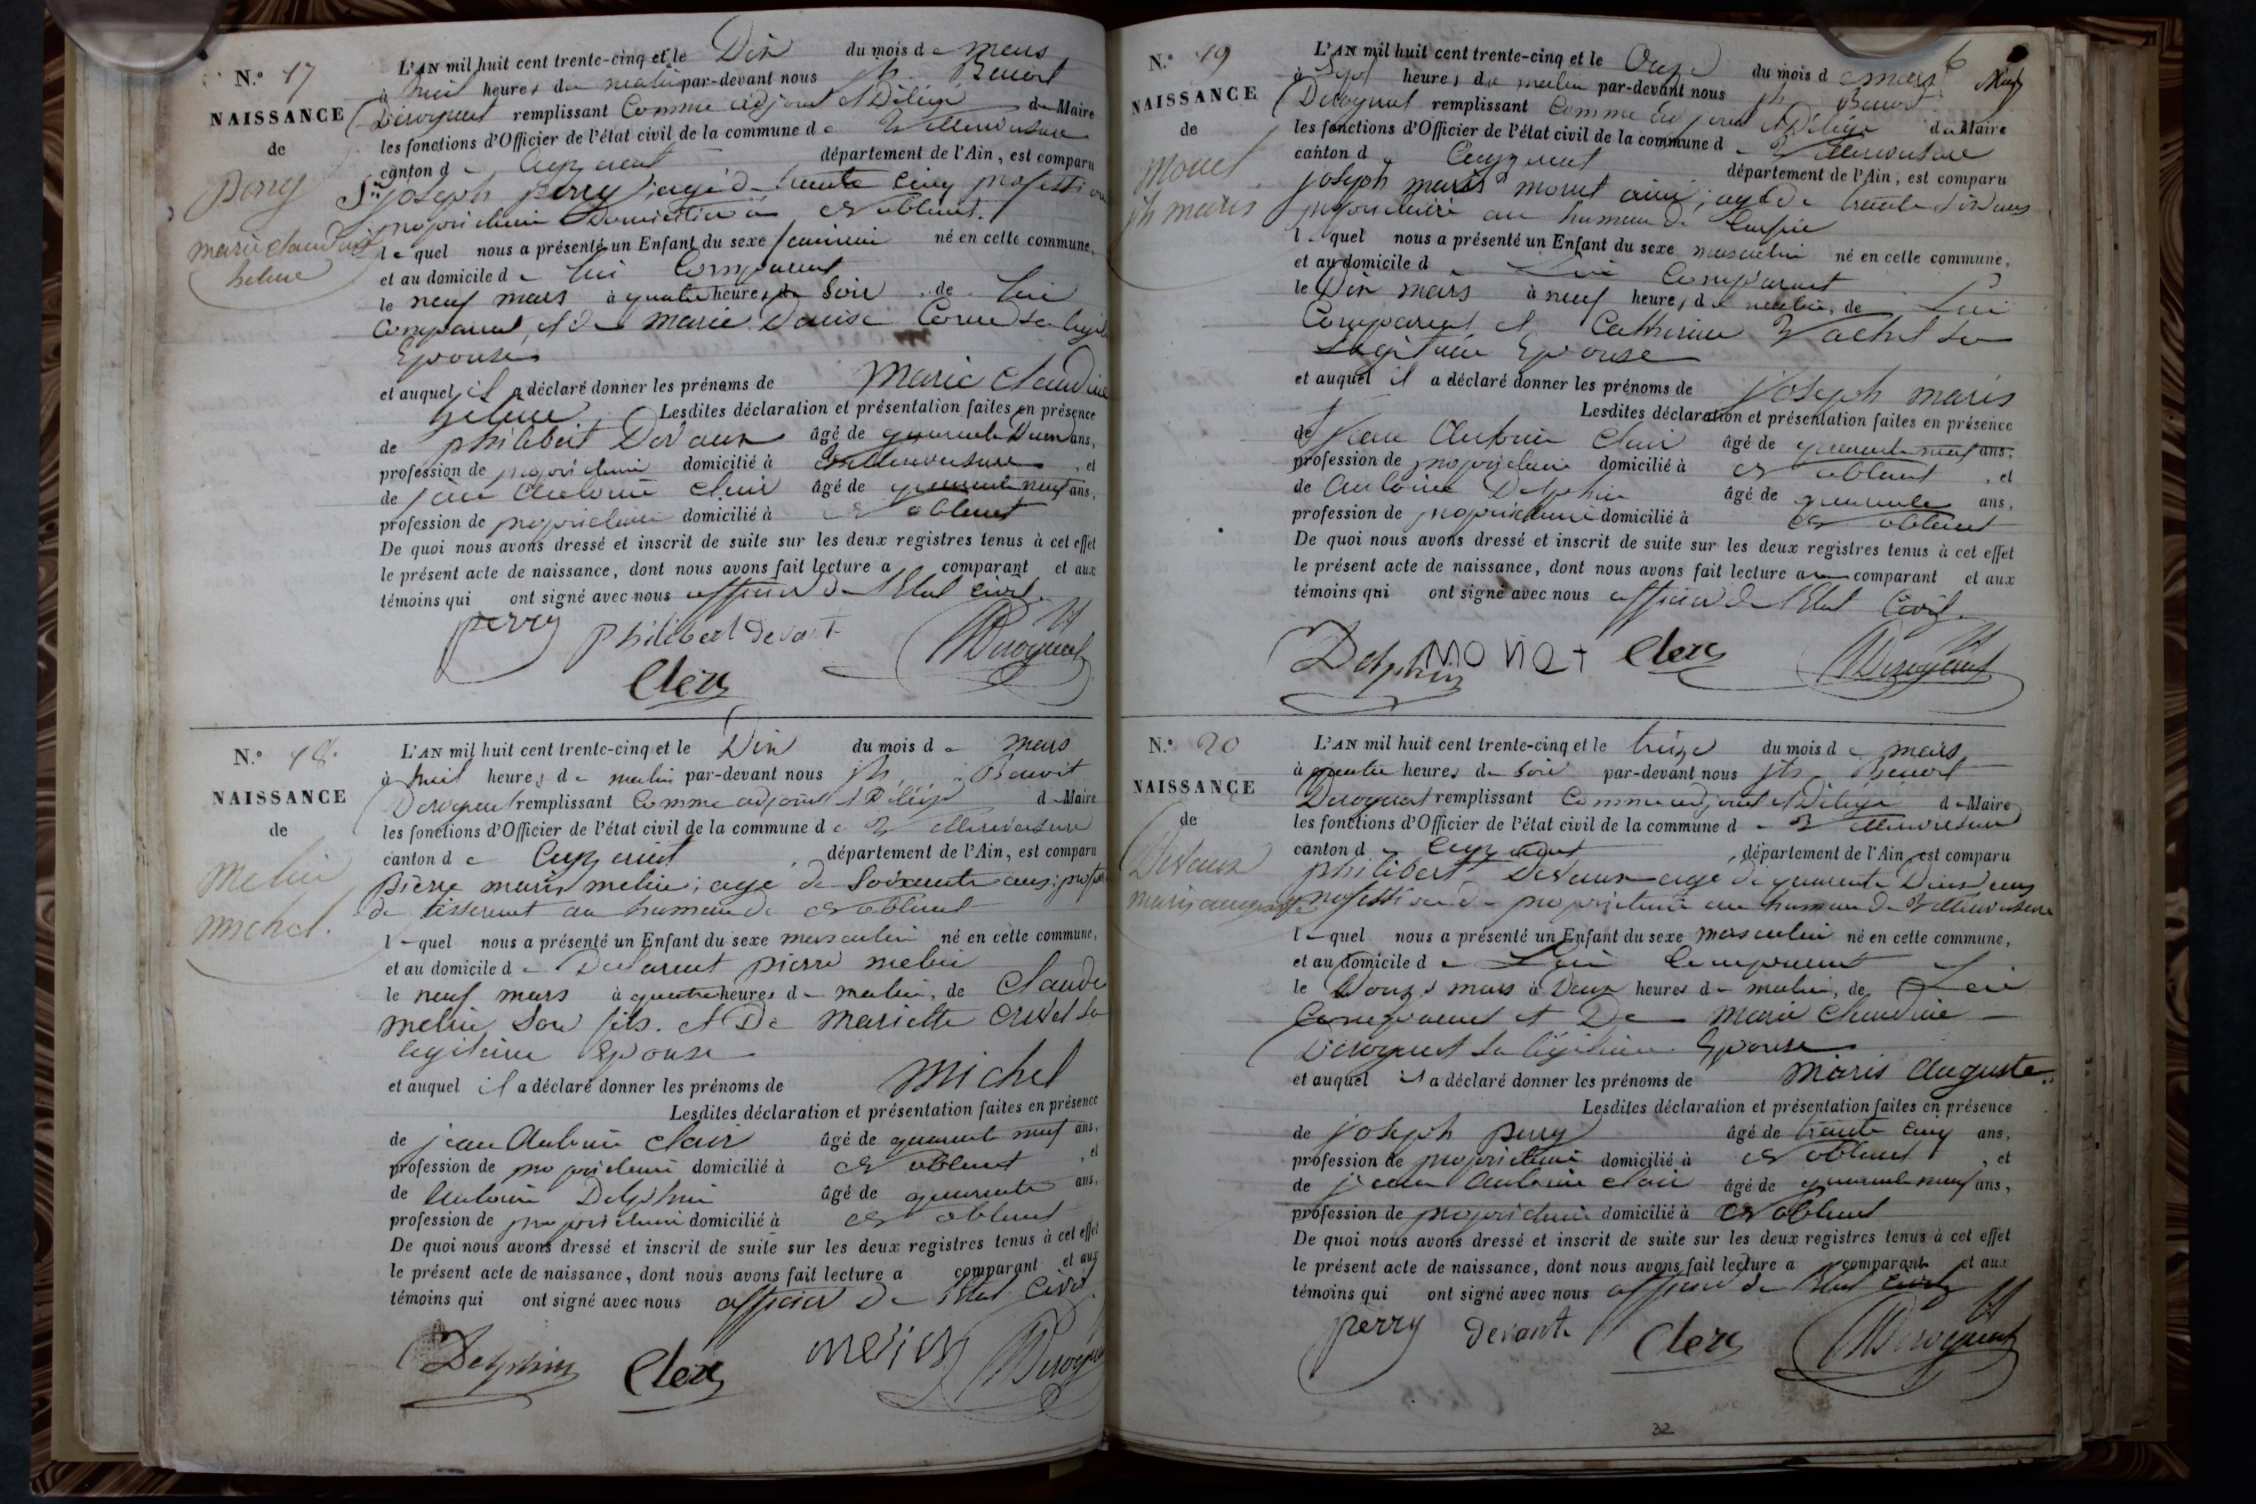 N.º 17
NAISSANCE
de
perry
marie claudine
helene
L'AN mil huit cent trente-cinq et le Dix du mois de mars
à huit heures du matin par-devant nous jh. Benoit
Derognat remplissant Comme adjoint et Délégé du Maire
les fonctions d'Officier de l'état civil de la commune de Villereversure
canton de Ceyzeriat département de l'Ain, est comparu
Sr joseph perry, agé de trente cinq profession
propriétaire Domicilié à
le quel nous a présenté un Enfant du sexe feminin né en cette commune,
et au domicile de lui Comparant
le neuf mars à quatre heures du Soir, de Lui
Comparant, et de marie Denise sa légit
Epouse
et auquel il a déclaré donner les prénoms de Marie Claudine
helene Lesdites déclaration et présentation faites en présence
de philibert Devaux âgé de quarante Deux ans,
profession de propriétaire domicilié à Villereversure, et
de jean Antoine Clair âgé de quarante neuf ans,
profession de propriétaire domicilié à
De quoi nous avons dressé et inscrit de suite sur les deux registres tenus à cet effet
le présent acte de naissance, dont nous avons fait lecture a comparant et aux
témoins qui ont signé avec nous officier de l'Etat Civil.
perry philibert devant Derognat
Clerc
N.º 18.
NAISSANCE
de
melin
michel.
L'AN mil huit cent trente-cinq et le Dix du mois de mars
à huit heures de matin par-devant nous jh. Benoit
Derognat remplissant Comme adjoint et Délégé de Maire
les fonctions d'Officier de l'état civil de la commune de Villereversure
canton de Ceyzeriat, département de l'Ain, est comparu
pierre maris melin, agé de Soixante ans, profession
de tisserant au hameau de
le quel nous a présenté un Enfant du sexe masculin né en cette commune,
et au domicile de pierre melin
le neuf mars à quatre heures de matin, de Claude
melin Son fils. et De Mariette sa
légitime Epouse
et auquel il a déclaré donner les prénoms de Michel
Lesdites déclaration et présentation faites en présence
de jean Antoine Clair âgé de quarante neuf ans,
profession de propriétaire domicilié à, et
de Antoine Delphin âgé de quarante ans,
profession de propriétaire domicilié à
De quoi nous avons dressé et inscrit de suite sur les deux registres tenus à cet effet
le présent acte de naissance, dont nous avons fait lecture a comparant et aux
témoins qui ont signé avec nous officier De l'Etat Civil.
Delphin Clerc melin Derognat
N.º 19
NAISSANCE
de
monet
jh maris
6
L'AN mil huit cent trente-cinq et le Onze du mois de mars
à Sept heures du matin par-devant nous jh. Benoit
Derognat remplissant Comme adjoint et Délégé du Maire
les fonctions d'Officier de l'état civil de la commune de Villereversure
canton de Ceyzeriat département de l'Ain, est comparu
joseph maris monet, agé de trente six ans
propriétaire au hameau de
le quel nous a présenté un Enfant du sexe masculin né en cette commune,
et au domicile de Lui Comparant
le Dix mars à neuf heures de matin, de Lui
Comparant et Catherine Vachet sa
Légitime Epouse
et auquel il a déclaré donner les prénoms de joseph maris
Lesdites déclaration et présentation faites en présence
de jean Antoine Clair âgé de quarante neuf ans,
profession de propriétaire domicilié à, et
de Antoine Delphin âgé de quarante ans,
profession de propriétaire domicilié à
De quoi nous avons dressé et inscrit de suite sur les deux registres tenus à cet effet
le présent acte de naissance, dont nous avons fait lecture au comparant et aux
témoins qui ont signé avec nous officier de l'Etat Civil.
Delphin monet Clerc Derognat
N.º 20
NAISSANCE
de
Devaux
maris auguste
L'AN mil huit cent trente-cinq et le treize du mois de mars
à quatre heures du Soir par-devant nous jh. Benoit
Derognat remplissant Comme adjoint et Délégé de Maire
les fonctions d'Officier de l'état civil de la commune de Villereversure
canton de Ceyzeriat, département de l'Ain, est comparu
philibert Devaux agé de quarante Deux ans
profession de propriétaire au hameau de Villereversure
le quel nous a présenté un Enfant du sexe masculin né en cette commune,
et au domicile de Lui Comparant
le Douze mars à Deux heures de matin, de Lui
Comparant et De marie Claudine
Derognat Sa légitime Epouse
et auquel il a déclaré donner les prénoms de maris Auguste
Lesdites déclaration et présentation faites en présence
de joseph perry âgé de trente cinq ans,
profession de propriétaire domicilié à, et
de jean Antoine Clair âgé de quarante neuf ans,
profession de propriétaire domicilié à
De quoi nous avons dressé et inscrit de suite sur les deux registres tenus à cet effet
le présent acte de naissance, dont nous avons fait lecture a comparant et aux
témoins qui ont signé avec nous officier de l'Etat Civil
perry devant Clerc Derognat
32